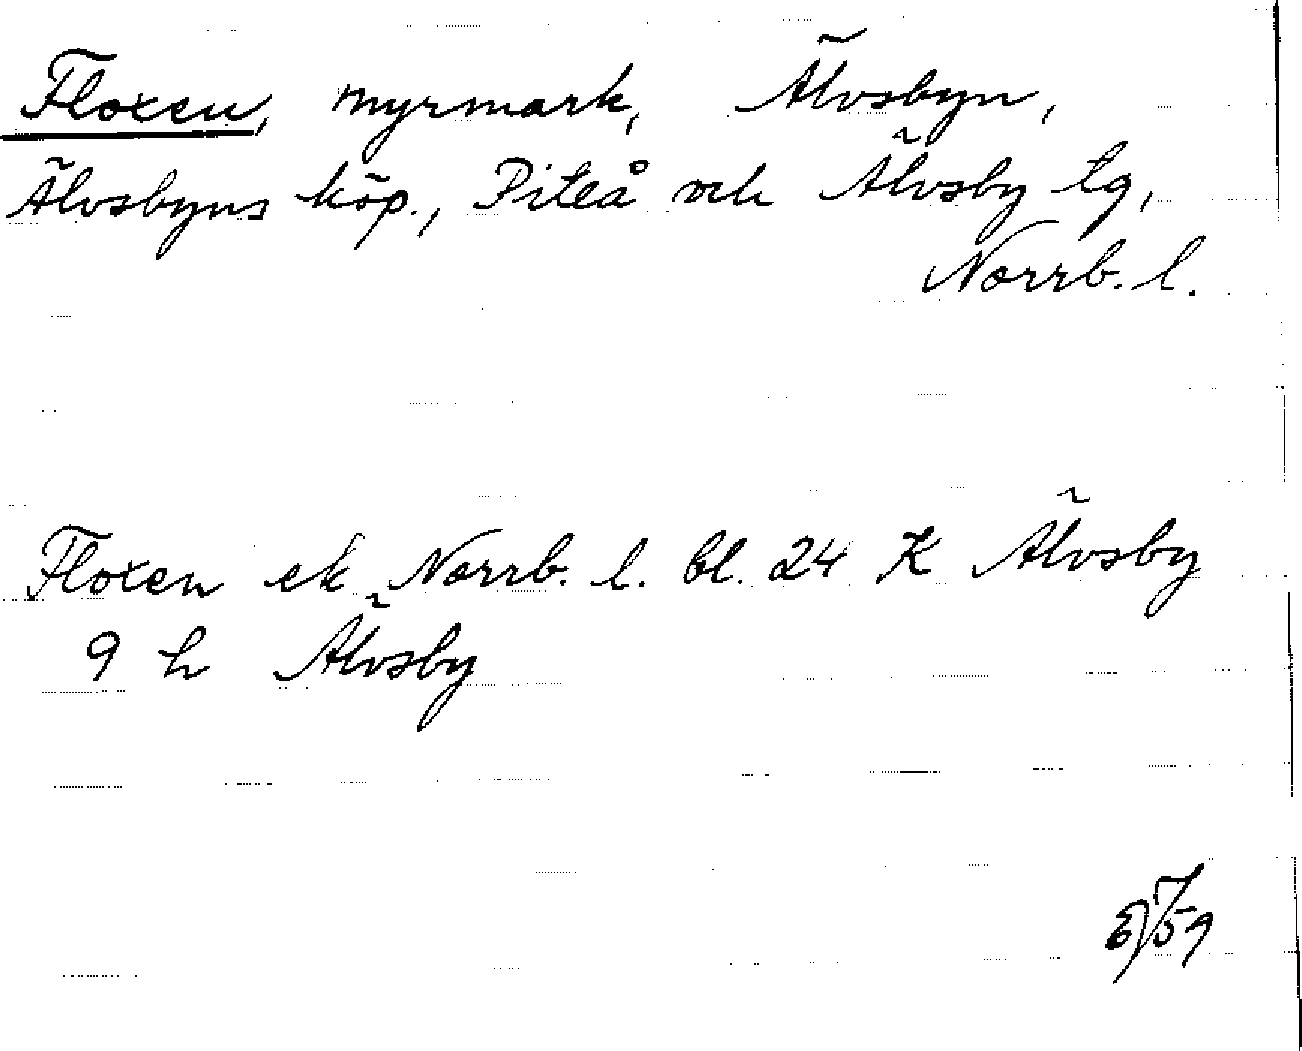 Floxen, myrmark, Älvsbyn,
Älvsbyns köp., Piteå och Älvsby tg,
Norrb. l.
Floxen ek Norrb. l. bl. 24 K Älvsby
9 h Älvsby